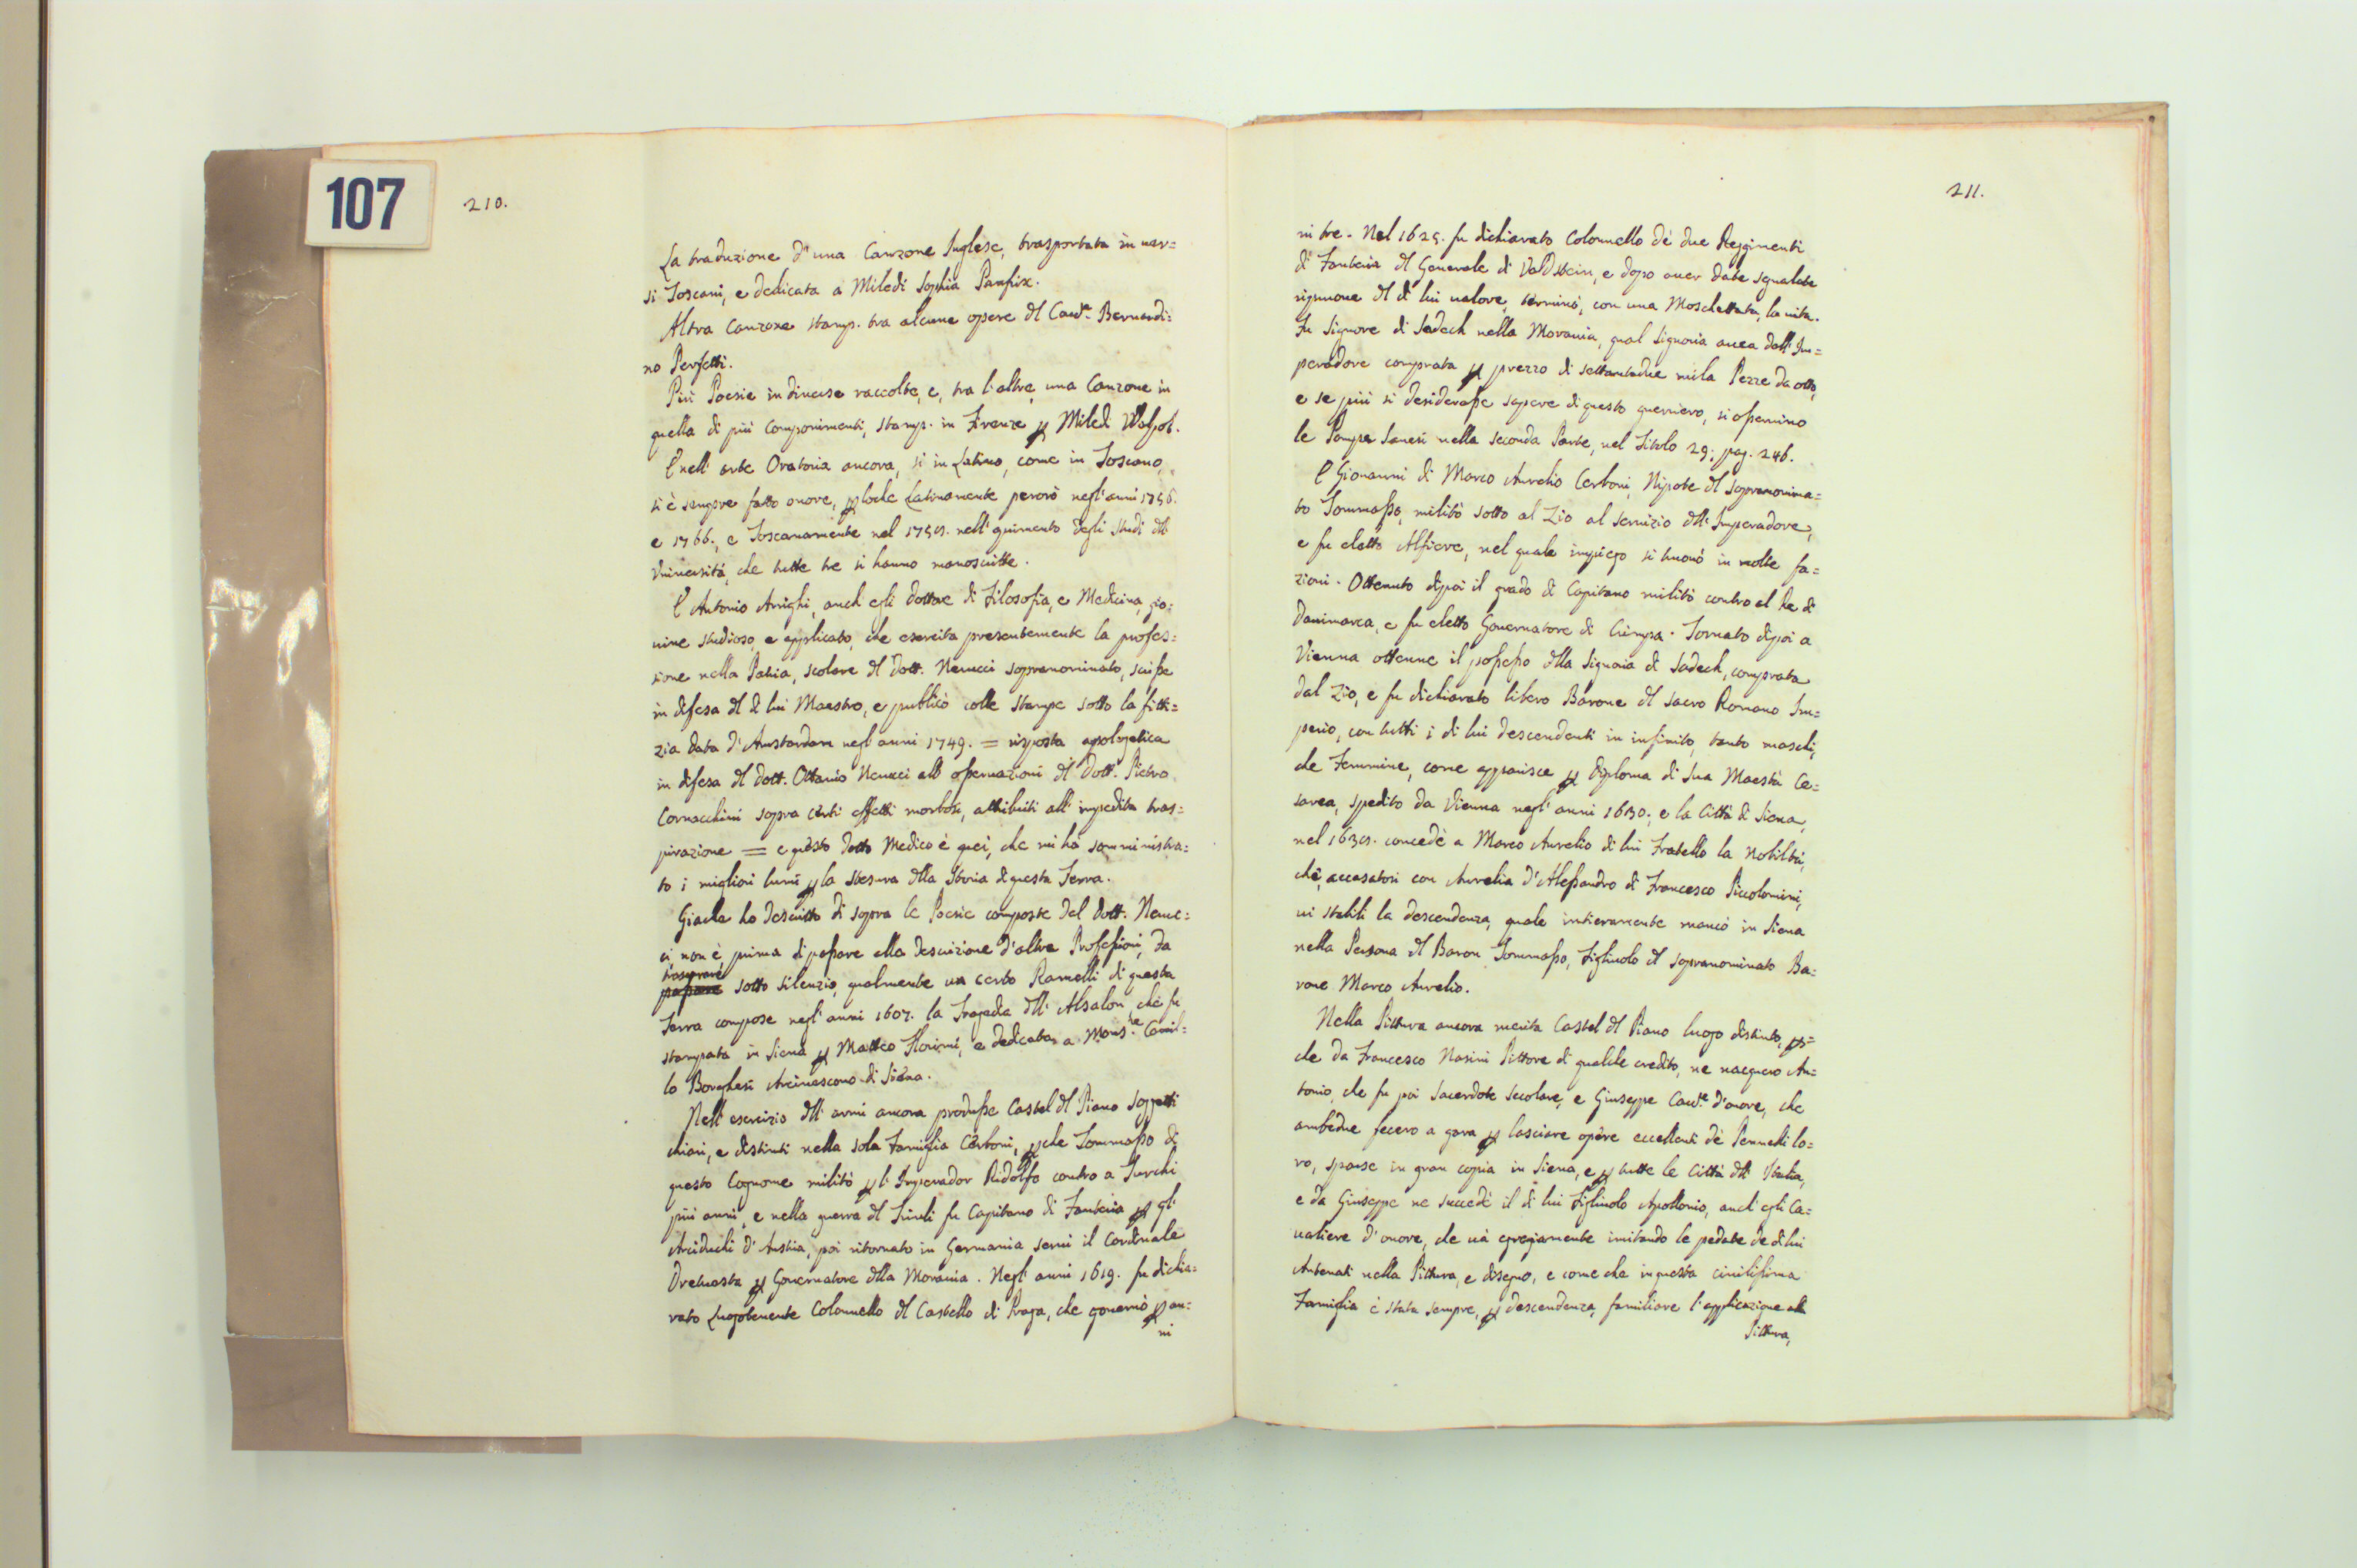 107
210.
La traduzione d'una Canzone Inglese, trasportata in uer=
si Toscani, e dedicata a Miledi Sophia Panfrix.
Altra Canzone stamp. tra alcune opere dl Cau.re Bernardi=
no Perfetti.
Più Poesie in diuerse raccolte, e, tra l'altre, una Canzone in
quella di più Componimenti, stamp. in Firenze p Miledi Walpol.
E nell'arte Oratoria ancora, si in Latino, come in Toscano,
si è sempre fatto onore, p loche Latinamente perorò negl'anni 1756.
e 1766., e Toscanamente nel 1759. nell'aprimento degli Studi dll'
Vniuersità, che tutte tre si hanno manoscritte.
E Antonio Arrighi, anch'egli Dottore di Filosofia, e Medicina, gio=
uine studioso, e applicato, che esercita presentemente la profes=
sione nella Patria, scolare dl Dott. Nerucci sopranominato, scriße
in difesa dl di lui Maestro, e publicò colle stampe sotto la fitti=
zia data d'Amstardam negl'anni 1749. = risposta apologetica
in difesa dl Dott. Ottauio Nerucci all' oßeruazioni dl Dott. Pietro
Cornacchini sopra certi effetti morbosi, attribuiti all'impedita tras=
pirazione = e questo dotto Medico è quei, che mi hà somministra=
to i migliori lumi p la stesura dlla Storia di questa Terra.
Giacche ho descritto di sopra le Poesie composte dal Dott. Neruc=
ci, non è, prima di paßare alla descrizione d'altre Profeßioni, da
trasportare
paßare sotto silenzio, qualmente un certo Ramelli di questa
Terra compose negl'anni 1607. la Tragedia dll'Absalon, che fu
stampata in Siena p Matteo Florimi, e dedicata a Mons.re Camil=
lo Borghesi Arciuescouo di Siena.
Nell'esercizio dll'armi ancora produße Castel dl Piano soggetti
chiari, e distinti nella sola Famiglia Cerboni, p che Tommaßo di
questo Cognome militò p l'Imperador Ridolfo contro a Turchi
più anni, e nella guerra dl Friuli fu Capitano di Fanteria p gl'
Arciduchi d'Austria, poi ritornato in Germania serui il Cardinale
Dretrasta p Gouernatore dlla Morauia. Negl'anni 1619. fu dichia=
rato Luogotenente Colonnello dl Castello di Praga, che gouernò p an=
ni
211.
ni tre. Nel 1625. fu dichiarato Colonnello de due Reggimenti
di Fanteria dl Generale di Valdstein, e dopo auer date segnalate
ripruoue dl di lui ualore, terminò, con una Moschettata, la uita.
Fu Signore di Sadech nella Morauia, qual Signoria auea dall'Im=
peradore comprata p prezzo di settantadue mila Pezze da otto,
e se più si desideraße sapere di questo guerriero, si oßeruino
le Pompe Sanesi nella seconda Parte, nel Titolo 29; pag. 246.
E Giouanni di Marco Aurelio Cerboni, Nipote dl sopranomina=
to Tommaßo, militò sotto al Zio al seruizio dll'Imperadore,
e fu eletto Alfiere, nel quale impiego si truouò in molte fa=
zioni. Ottenuto dipoi il grado di Capitano militò contro al Re di
Danimarca, e fu eletto Gouernatore di Crempa. Tornato dipoi a
Vienna ottenne il poßeßo dlla Signoria di Sadech, comprata
dal Zio, e fu dichiarato libero Barone dl Sacro Romano Im=
perio, con tutti i di lui descendenti in infinito, tanto maschi,
che Femmine, come apparisce p diploma di Sua Maestà Ce=
sarea, spedito da Vienna negl'anni 1630., e la Città di Siena,
nel 1639. concedè a Marco Aurelio di lui Fratello la Nobiltà,
che, accasatosi con Aurelia d'Aleßandro di Francesco Piccolomini,
ui stabilì la descendenza, quale intieramente mancò in Siena
nella Persona dl Baron Tommaßo, Figliuolo dl sopranominato Ba=
rone Marco Aurelio.
Nella Pittura ancora merita Castel dl Piano luogo distinto, p=
che da Francesco Nasini Pittore di qualche credito, ne nacquero An=
tonio, che fu poi Sacerdote secolare, e Giuseppe Cau.re d'onore, che
ambedue fecero a gara p lasciare opere eccellenti de Pennelli lo=
ro, sparse in gran copia in Siena, e p tutte le Città dll'Italia,
e da Giuseppe ne succedè il di lui Figliuolo Apollonio, anch'egli Ca=
ualiere d'onore, che uà egregiamente imitando le pedate de di lui
Antenati nella Pittura, e disegno, e come che in questa ciuilißima
Famiglia è stata sempre, p descendenza, familiare l'applicazione alla
Pittura,